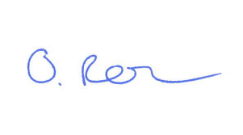 O. Ren